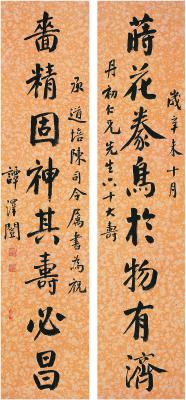 歲辛未十月
蒔花豢鳥於物有濟
丹初仁兄先生六十大壽
承道培陳司令属書為祝
嗇精固神其壽必昌
譚澤闓